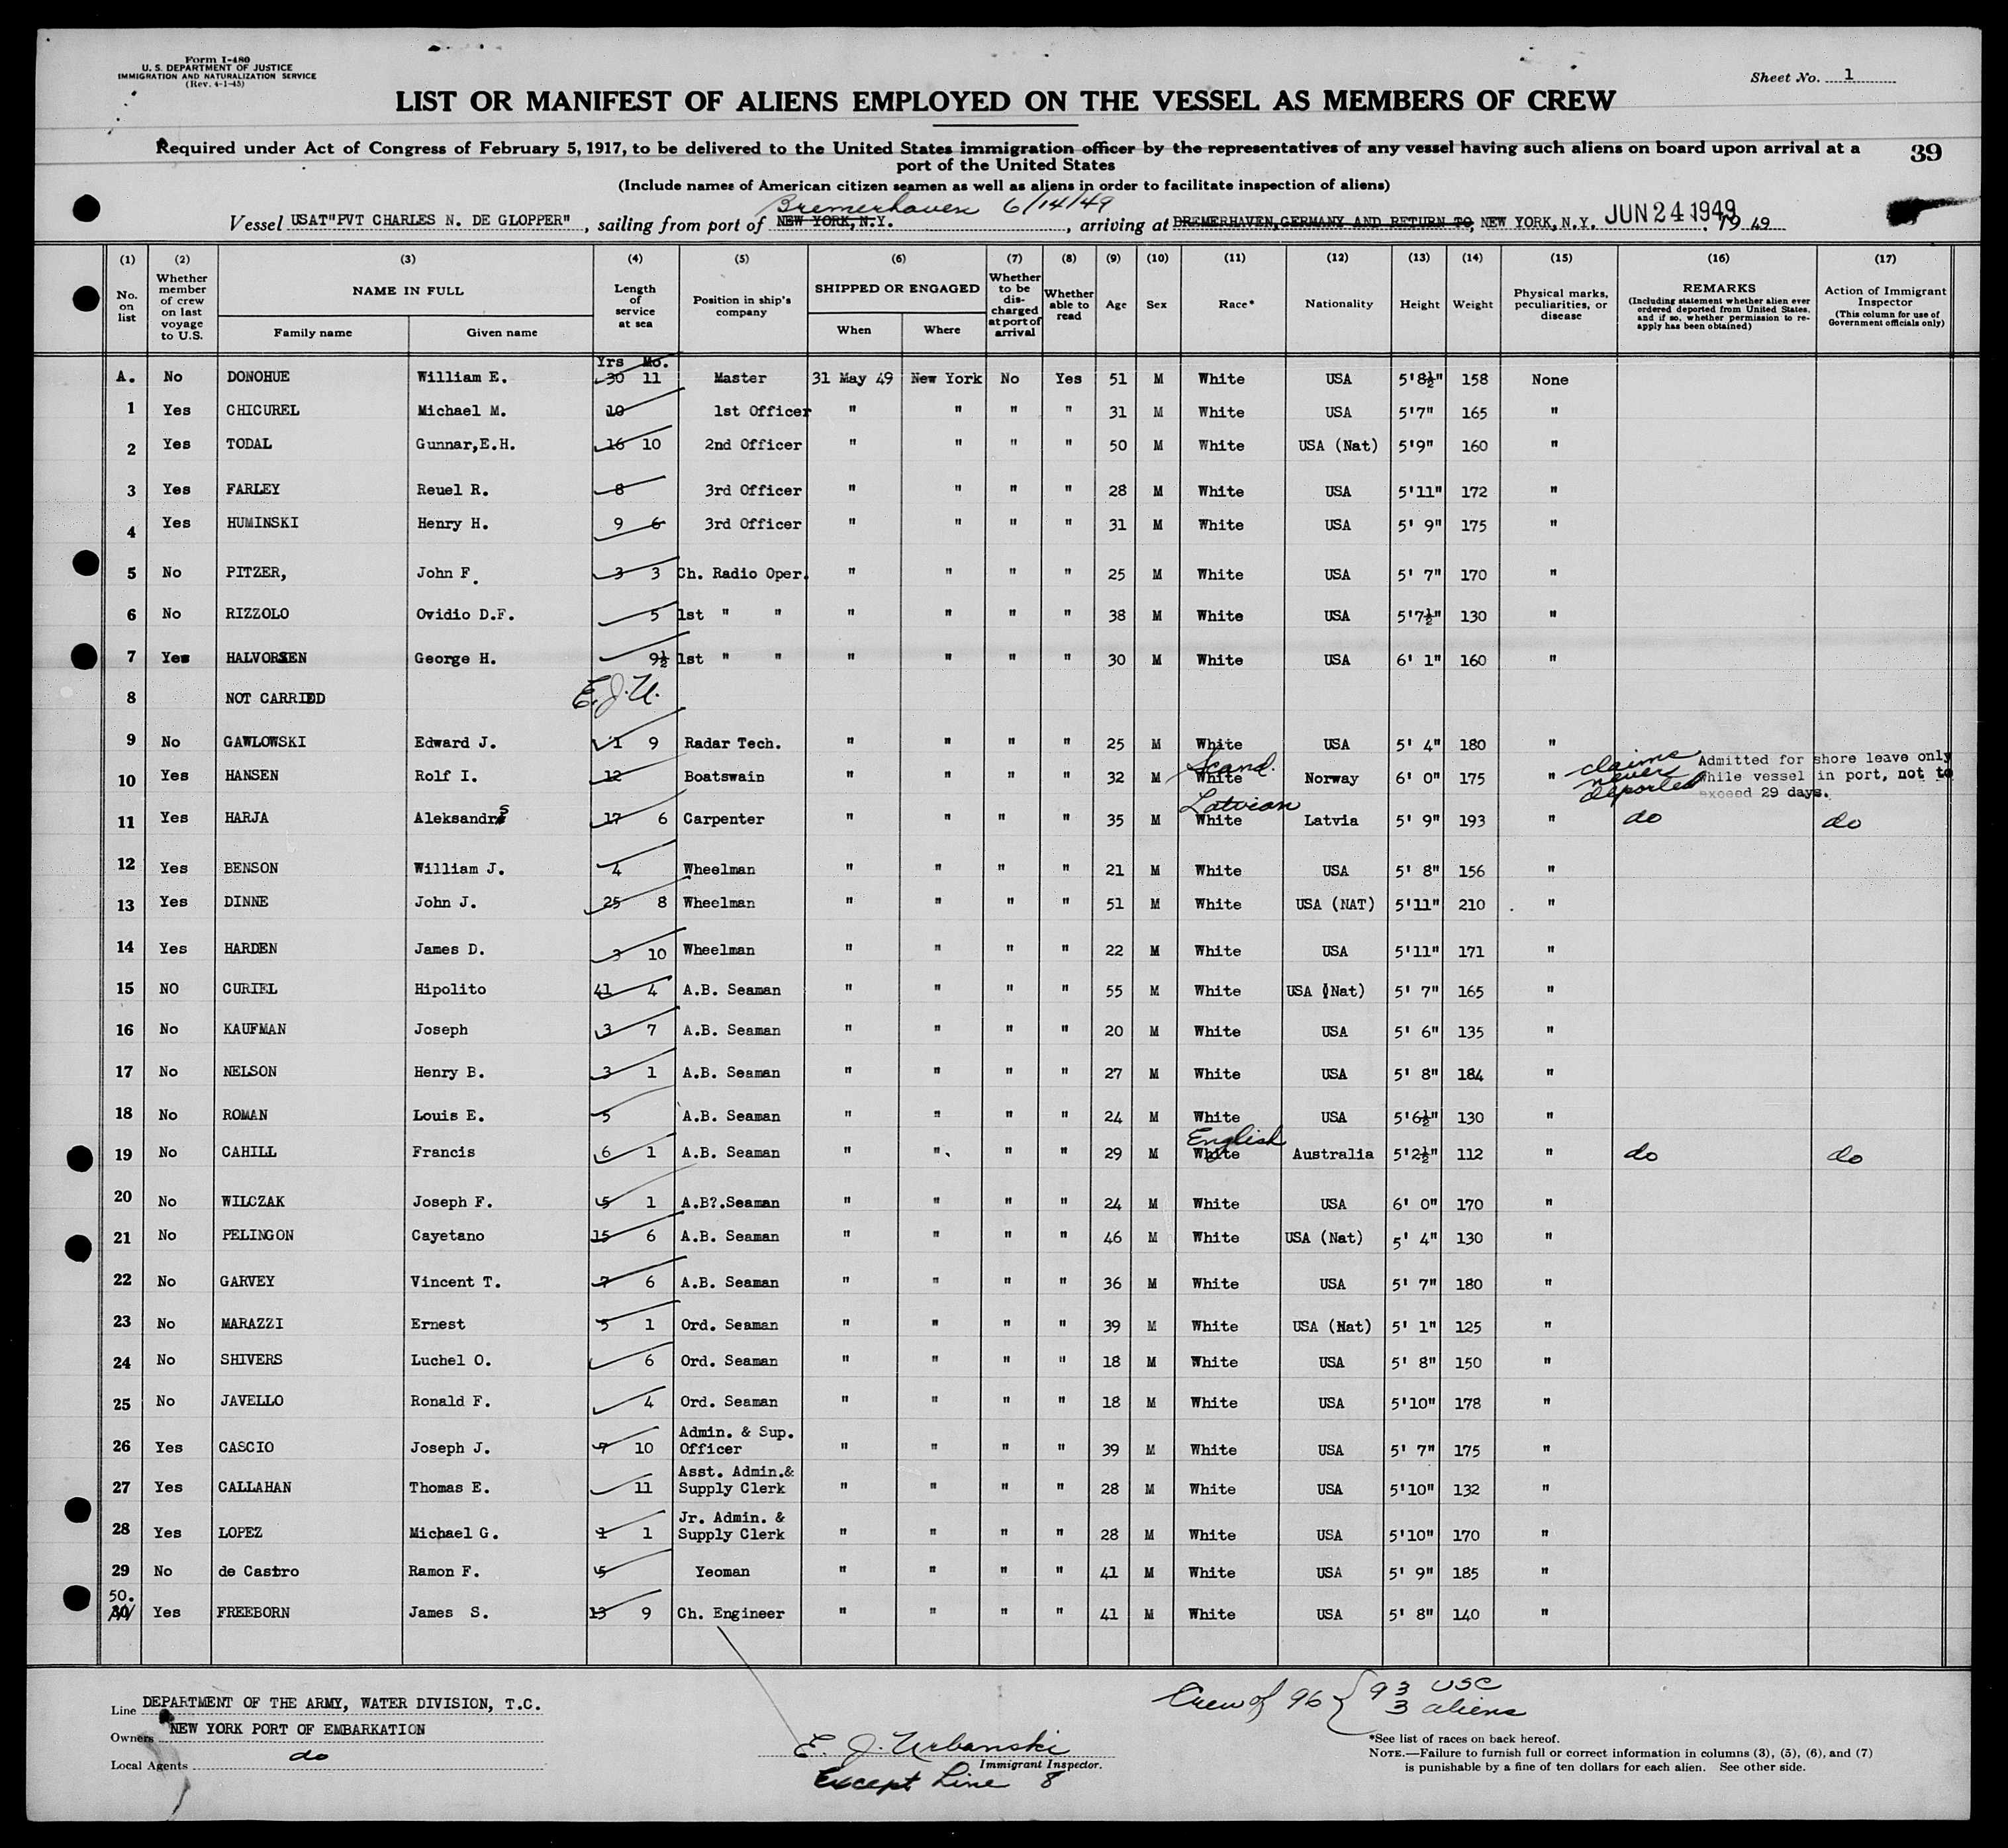 Form I-480
U. S. DEPARTMENT OF JUSTICE
IMMIGRATION AND NATURALIZATION SERVICE
(Rev. 4-1-45)
Sheet No. 1
LIST OR MANIFEST OF ALIENS EMPLOYED ON THE VESSEL AS MEMBERS OF CREW
Required under Act of Congress of February 5, 1917, to be delivered to the United States immigration officer by the representatives of any vessel having such aliens on board upon arrival at a
port of the United States
39
(Include names of American citizen seamen as well as aliens in order to facilitate inspection of aliens)
Bremerhaven 6/14/49
Vessel USAT"PVT CHARLES N. DE GLOPPER", sailing from port of NEW YORK,N.Y., arriving at BREMERHAVEN,GERMANY AND RETURN TO, NEW YORK,N.Y. JUN 24 1949, 19 49
(1) No. on list (2) Whether member of crew on last voyage to U.S. (3) NAME IN FULL Family name Given name (4) Length of service at sea (5) Position in ship's company (6) SHIPPED OR ENGAGED When Where (7) Whether to be discharged at port of arrival (8) Whether able to read (9) Age (10) Sex (11) Race* (12) Nationality (13) Height (14) Weight (15) Physical marks, peculiarities, or disease (16) REMARKS (Including statement whether alien ever ordered deported from United States, and if so, whether permission to re-apply has been obtained) (17) Action of Immigrant Inspector (This column for use of Government officials only)
Yrs Mo.
A. No DONOHUE William E. 30 11 Master 31 May 49 New York No Yes 51 M White USA 5'8½" 158 None
1 Yes CHICUREL Michael M. 10 1st Officer " " " " 31 M White USA 5'7" 165 "
2 Yes TODAL Gunnar,E.H. 16 10 2nd Officer " " " " 50 M White USA (Nat) 5'9" 160 "
3 Yes FARLEY Reuel R. 8 3rd Officer " " " " 28 M White USA 5'11" 172 "
4 Yes HUMINSKI Henry H. 9 6 3rd Officer " " " " 31 M White USA 5' 9" 175 "
5 No PITZER, John F. 3 3 Ch. Radio Oper. " " " " 25 M White USA 5' 7" 170 "
6 No RIZZOLO Ovidio D.F. 5 1st " " " " " " 38 M White USA 5'7½" 130 "
7 Yes HALVORSEN George H. 9½ 1st " " " " " " 30 M White USA 6' 1" 160 "
8 NOT CARRIED E.J.U.
9 No GAWLOWSKI Edward J. 1 9 Radar Tech. " " " " 25 M White USA 5' 4" 180 "
10 Yes HANSEN Rolf I. 12 Boatswain " " " " 32 M White Scand. Norway 6' 0" 175 " claims never deported Admitted for shore leave only while vessel in port, not to exceed 29 days.
11 Yes HARJA Aleksandrs 17 6 Carpenter " " " " 35 M White Latvian Latvia 5' 9" 193 " do do
12 Yes BENSON William J. 4 Wheelman " " " " 21 M White USA 5' 8" 156 "
13 Yes DINNE John J. 25 8 Wheelman " " " " 51 M White USA (NAT) 5'11" 210 "
14 Yes HARDEN James D. 3 10 Wheelman " " " " 22 M White USA 5'11" 171 "
15 NO CURIEL Hipolito 41 4 A.B. Seaman " " " " 55 M White USA (Nat) 5' 7" 165 "
16 No KAUFMAN Joseph 3 7 A.B. Seaman " " " " 20 M White USA 5' 6" 135 "
17 No NELSON Henry B. 3 1 A.B. Seaman " " " " 27 M White USA 5' 8" 184 "
18 No ROMAN Louis E. 5 A.B. Seaman " " " " 24 M White USA 5'6½" 130 "
19 No CAHILL Francis 6 1 A.B. Seaman " " " " 29 M White English Australia 5'2½" 112 " do do
20 No WILCZAK Joseph F. 5 1 A.B?.Seaman " " " " 24 M White USA 6' 0" 170 "
21 No PELINGON Cayetano 15 6 A.B. Seaman " " " " 46 M White USA (Nat) 5' 4" 130 "
22 No GARVEY Vincent T. 7 6 A.B. Seaman " " " " 36 M White USA 5' 7" 180 "
23 No MARAZZI Ernest 5 1 Ord. Seaman " " " " 39 M White USA (Nat) 5' 1" 125 "
24 No SHIVERS Luchel O. 6 Ord. Seaman " " " " 18 M White USA 5' 8" 150 "
25 No JAVELLO Ronald F. 4 Ord. Seaman " " " " 18 M White USA 5'10" 178 "
26 Yes CASCIO Joseph J. 7 10 Admin. & Sup. Officer " " " " 39 M White USA 5' 7" 175 "
27 Yes CALLAHAN Thomas E. 11 Asst. Admin.& Supply Clerk " " " " 28 M White USA 5'10" 132 "
28 Yes LOPEZ Michael G. 1 1 Jr. Admin. & Supply Clerk " " " " 28 M White USA 5'10" 170 "
29 No de Castro Ramon F. 5 Yeoman " " " " 41 M White USA 5' 9" 185 "
50.
30 Yes FREEBORN James S. 13 9 Ch. Engineer " " " " 41 M White USA 5' 8" 140 "
Line DEPARTMENT OF THE ARMY, WATER DIVISION, T.C.
Owners NEW YORK PORT OF EMBARKATION
Local Agents do
E. J. Urbanski
Immigrant Inspector.
Except Line 8
Crew of 96 { 93 USC
3 aliens
*See list of races on back hereof.
NOTE.—Failure to furnish full or correct information in columns (3), (5), (6), and (7)
is punishable by a fine of ten dollars for each alien. See other side.